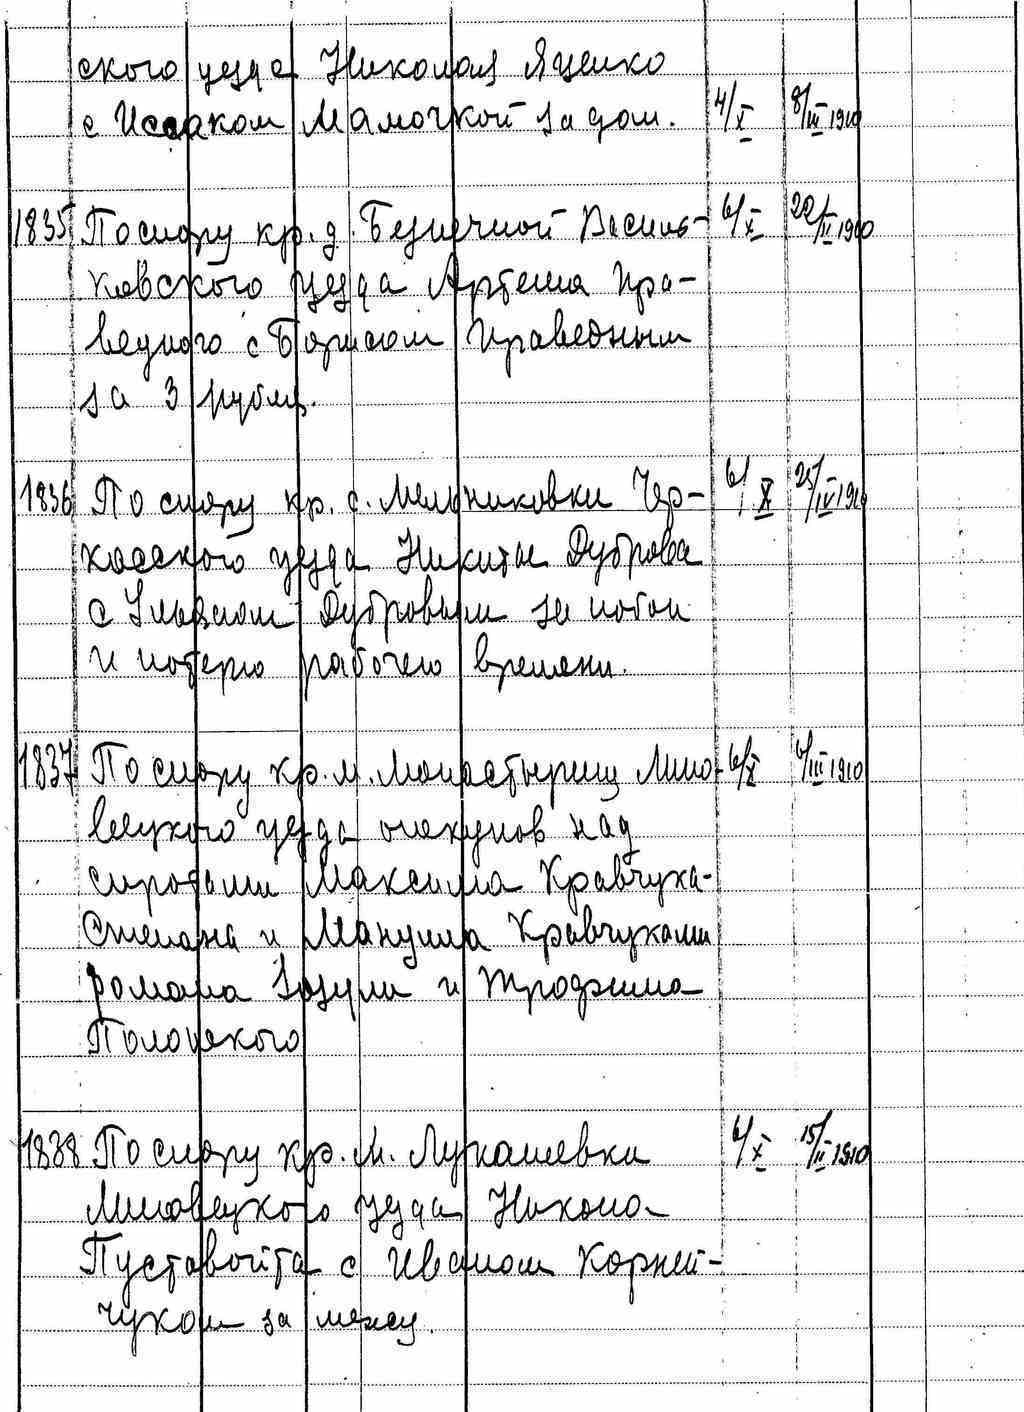 ского уезда Николая Яценко
с Исааком Мамочкой за дом. 4/X 8/III 1910
1835 По спору кр. д. Безпечной Василь- 6/X 22/II 1910
ковского уезда Артема Пра-
ведного с Борисом Праведным
за 3 рубля.
1836 По спору кр. с. Мельниковки Чер- 6/X 25/IV 1910
касского уезда Никиты Дуброва
с Ульяном Дубровым за побои
и потерю рабочего времени.
1837 По спору кр. м. Монастырищ Липо- 6/X 6/III 1910
вецкого уезда опекунов над
сиротами Максима Кравчука-
Степана и Мануила Кравчуками
Романа Зозули и Трофима
Полонского
1838 По спору кр. м. Лукашевки 6/X 15/II 1910
Липовецкого уезда Никона
Пуставойта с Иваном Корней-
чуком за межу.